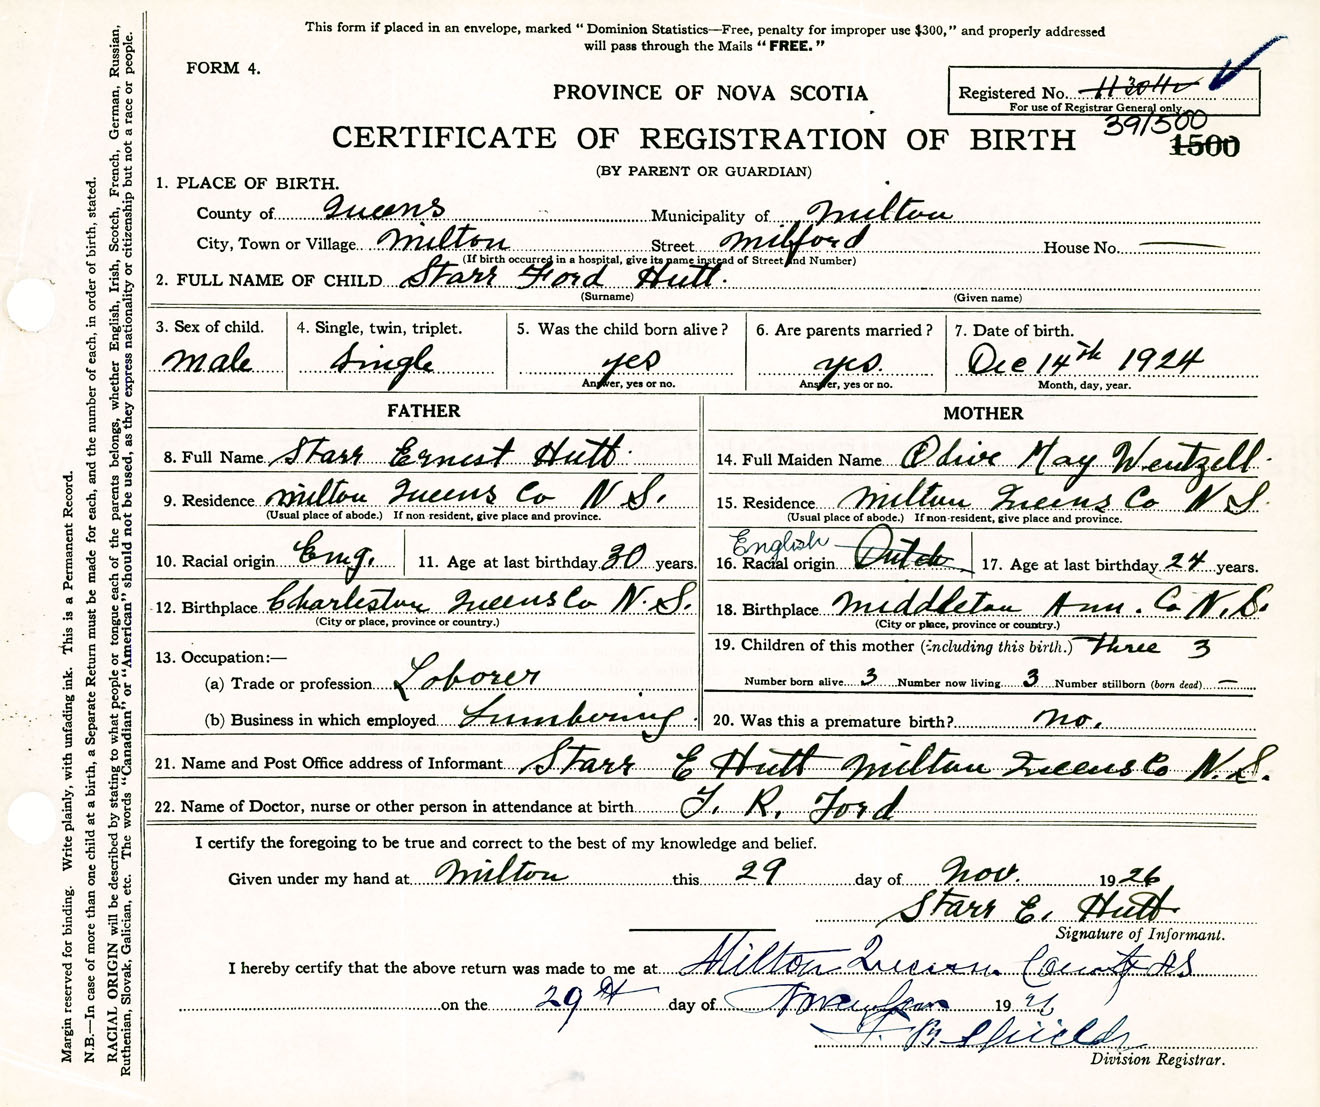 This form if placed in an envelope, marked "Dominion Statistics—Free, penalty for improper use $300," and properly addressed
will pass through the Mails "FREE."
FORM 4.
PROVINCE OF NOVA SCOTIA
Registered No.
For use of Registrar General only.
391500
1500
CERTIFICATE OF REGISTRATION OF BIRTH
(BY PARENT OR GUARDIAN)
1. PLACE OF BIRTH.
County of Queens Municipality of Milton
City, Town or Village Milton Street Milford House No. —
(If birth occurred in a hospital, give its name instead of Street and Number)
2. FULL NAME OF CHILD Starr Ford Hutt.
(Surname) (Given name)
3. Sex of child. 4. Single, twin, triplet. 5. Was the child born alive? 6. Are parents married? 7. Date of birth.
male Single yes yes. Dec 14th 1924
Answer, yes or no. Answer, yes or no. Month, day, year.
FATHER MOTHER
8. Full Name Starr Ernest Hutt 14. Full Maiden Name Olive May Wentzell
9. Residence Milton Queens Co N S. 15. Residence Milton Queens Co N S
(Usual place of abode.) If non resident, give place and province. (Usual place of abode.) If non-resident, give place and province.
English
10. Racial origin Eng. 11. Age at last birthday 30 years. 16. Racial origin Dutch 17. Age at last birthday 24 years.
12. Birthplace Charleston Queens Co N.S. 18. Birthplace Middleton Ann. Co N.S.
(City or place, province or country.) (City or place, province or country.)
13. Occupation:— 19. Children of this mother (including this birth.) three 3
(a) Trade or profession Laborer Number born alive 3 Number now living 3 Number stillborn (born dead) —
(b) Business in which employed Lumbering 20. Was this a premature birth? no.
21. Name and Post Office address of Informant Starr E Hutt Milton Queens Co N.S.
22. Name of Doctor, nurse or other person in attendance at birth T. R. Ford
I certify the foregoing to be true and correct to the best of my knowledge and belief.
Given under my hand at Milton this 29 day of Nov. 1926
Starr E. Hutt
Signature of Informant.
I hereby certify that the above return was made to me at Milton Queens County NS
on the 29th day of November 1926
Shields
Division Registrar.
Margin reserved for binding. Write plainly, with unfading ink. This is a Permanent Record.
N.B.—In case of more than one child at a birth, a Separate Return must be made for each, and the number of each, in order of birth, stated.
RACIAL ORIGIN will be described by stating to what people or tongue each of the parents belongs, whether English, Irish, Scotch, French, German, Russian,
Ruthenian, Slovak, Galician, etc. The words "Canadian" or "American" should not be used, as they express nationality or citizenship but not a race or people.